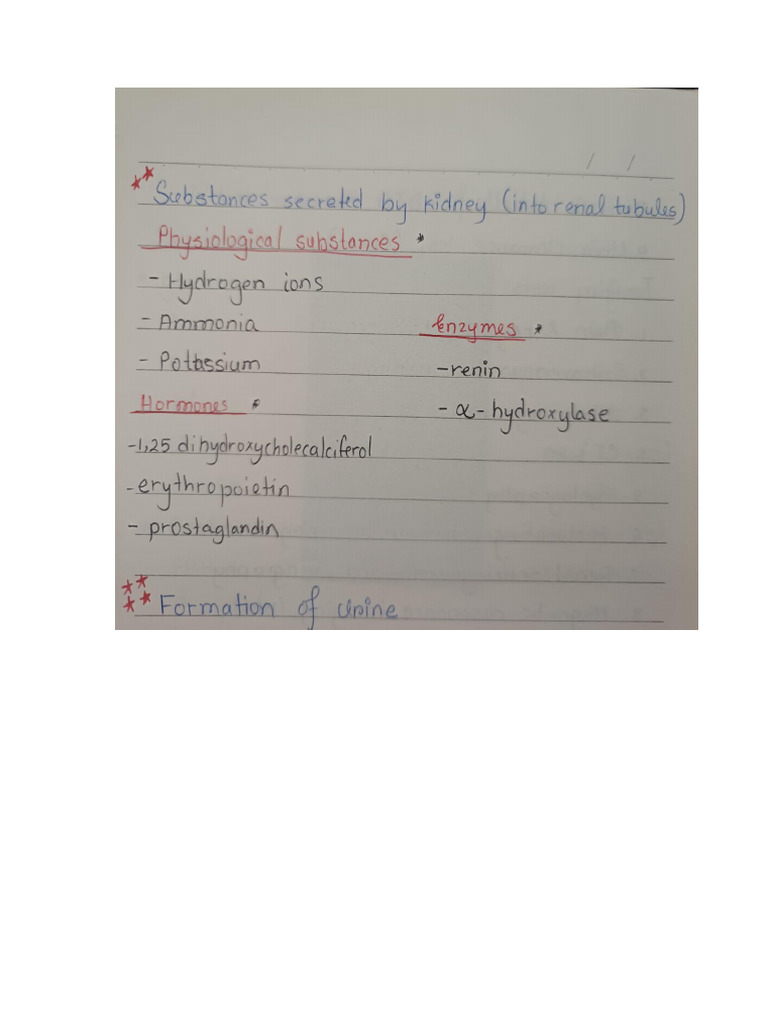 ** Substances secreted by kidney (into renal tubules)
Physiological substances *
- Hydrogen ions
- Ammonia
- Potassium
Enzymes *
- renin
- α - hydroxylase
Hormones *
- 1,25 dihydroxycholecalciferol
- erythropoietin
- prostaglandin
**** Formation of urine